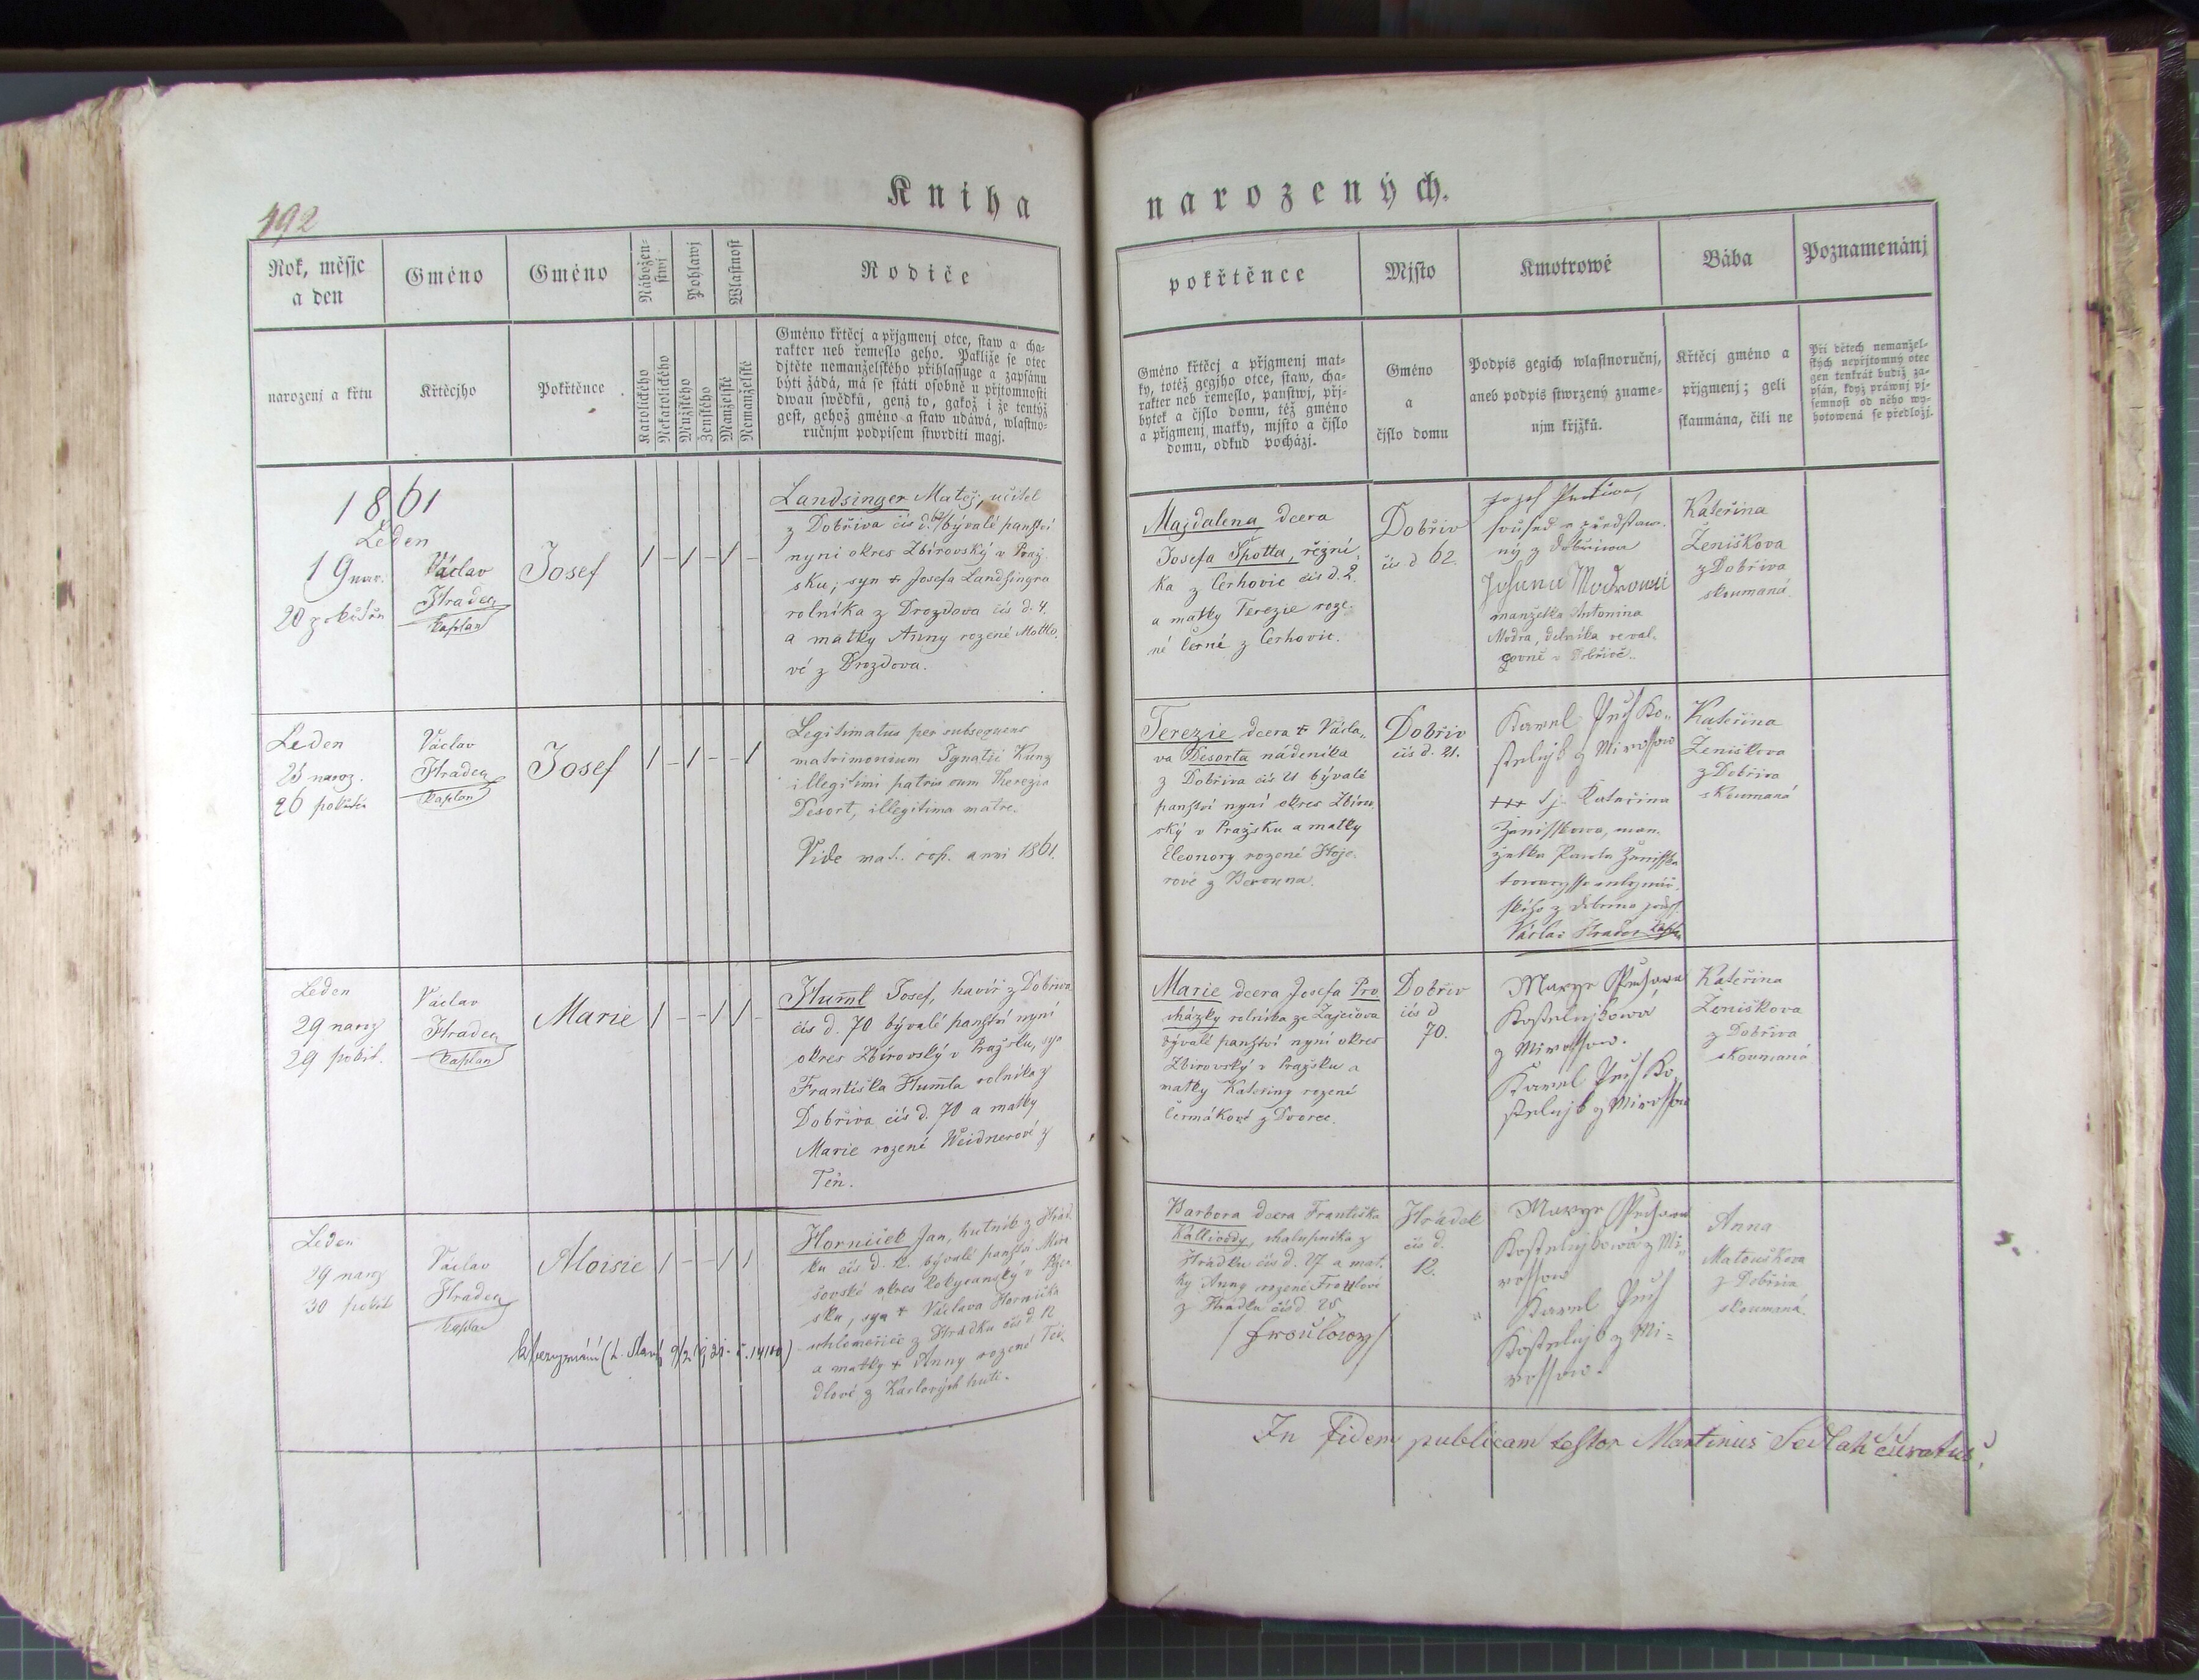 192
Kniha narozených.
Rok, měsjc
a den
Gméno
Gméno
Nábožen-
stwj
Pohlawj
Wlastnost
Rodiče
pokřtěnce
Mjsto
Kmotrowé
Bába
Poznamenánj
narozenj a křtu
Křtěcjho
Pokřtěnce
Katolického
Nekatolického
Mužského
Ženského
Manželské
Nemanželské
Gméno křtěcj a přjgmenj otce, staw a cha-
rakter neb řemeslo geho. Pakliže se otec
djtěte nemanželského přihlassuge a zapsánu
býti žádá, má se státi osobně u přjtomnosti
dwau swědků, genž to, gakož i že tentýž
gest, gehož gméno a staw udáwá, wlastno-
ručnjm podpisem stwrditi magj.
Gméno křtěcj a přjgmenj mat-
ky, totéž gegjho otce, staw, cha-
rakter neb řemeslo, panstwj, přj-
bytek a čjslo domu, též gméno
a přjgmenj matky, mjsto a čjslo
domu, odkud pocházj.
Gméno
a
čjslo domu
Podpis gegich wlastnoručnj,
aneb podpis stwrzený zname-
njm křjžků.
Křtěcj gméno a
přjgmenj; geli
skaumána, čili ne
Při dětech nemanžel-
ských nepřjtomný otec
gen tenkrát budiž za-
psán, když práwnj pj-
semnost od něho wy-
hotowená se předložj.
1861
Leden
19 nar.
20 pokřtěn
Václav
Hradec
kaplan
Josef
Landsinger Matěj, učitel
z Dobřiva čís d. 62 bývalé panství
nyní okres Zbirovský v Praž-
sku, syn + Josefa Landsingra
rolníka z Drozdova čís d. 4.
a matky Anny rozené Mottlo-
vé z Drozdova.
Majdalena dcera
Josefa Špotta, řezní-
ka z Cerhovic čís d. 2.
a matky Terezie roze-
né Černé z Cerhovic.
Dobřiv
čís d 62.
soused a představe-
ný z Dobřiwa
manželka Antonína
Modra, dělníka ve val-
covně v Dobřivě.
Kateřina
Ženiškova
z Dobřiva
skoumaná.
Leden
23 naroz.
26 pokřtěn
Václav
Hradec
kaplan
Josef
Legitimatus per subsequens
matrimonium Ignatii Kunz
illegitimi patris cum Therezia
Desort, illegitima matre.
Vide mat. cop. anni 1861.
Terezie dcera + Václa-
va Desorta nádeníka
z Dobřiva čís 21 bývalé
panství nyní okres Zbirov-
ský v Pražsku a matky
Eleonory rozené Hoje-
rové z Berouna.
Dobřiv
čís d. 21.
Karel Puch Ko-
stelnjk z Mirossow
+++ Kateřina
Ženisskowa, man-
želka Ženisska
Václav Hradec kaplan
Kateřina
Ženiškova
z Dobřiva
skoumaná
Leden
29 naroz
29 pokřt.
Václav
Hradec
kaplan
Marie
Huml Josef, havíř z Dobřiva
čís d. 70 bývalé panství nyní
okres Zbirovský v Pražsku, syn
Františka Humla rolníka z
Dobřiva čís d. 70 a matky
Marie rozené Weidnerové z
Těn.
Marie dcera Josefa Pro-
cházky rolníka ze Zaječova
bývalé panství nyní okres
Zbirovský v Pražsku a
matky Kateřiny rozené
Čermákové z Dvorce.
Dobřiv
čís d
70.
Marye Puchowa
Kostelnjkowa
z Mirossow.
Karel Puch Ko-
stelnjk z Mirossow
Kateřina
Ženiškova
z Dobřiva
skoumaná
Leden
29 naroz
30 pokřt
Václav
Hradec
kaplan
Aloisie
Horníček Jan, hutník z Hrád-
ku čís d. 12. bývalé panství Miro-
šovské okres Rokycanský v Plzen-
sku, syn + Václava Horníčka
z Hrádku čís d. 12
a matky + Anny rozené Tei-
dlové z Karlových hutí.
Barbora dcera Františka
Kallivody, chalupníka z
Hrádku čís d. 27 a mat-
ky Anny rozené
z Hrádku čís d. 28
Hrádek
čís d.
12.
Marye Puchowa
Kostelnjkowa z Mi-
rossow
Karel Puch
Kostelnjk z Mi-
rossow.
Anna
Matouškova
z Dobřiva
skoumaná.
In fidem publicam testor Martinus Sedlak curatus.